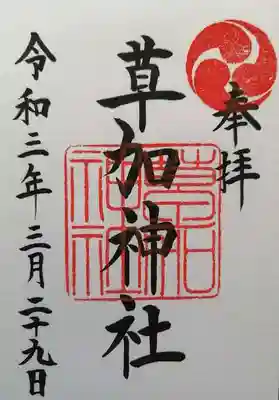 奉拝
草加神社
令和三年三月二十九日